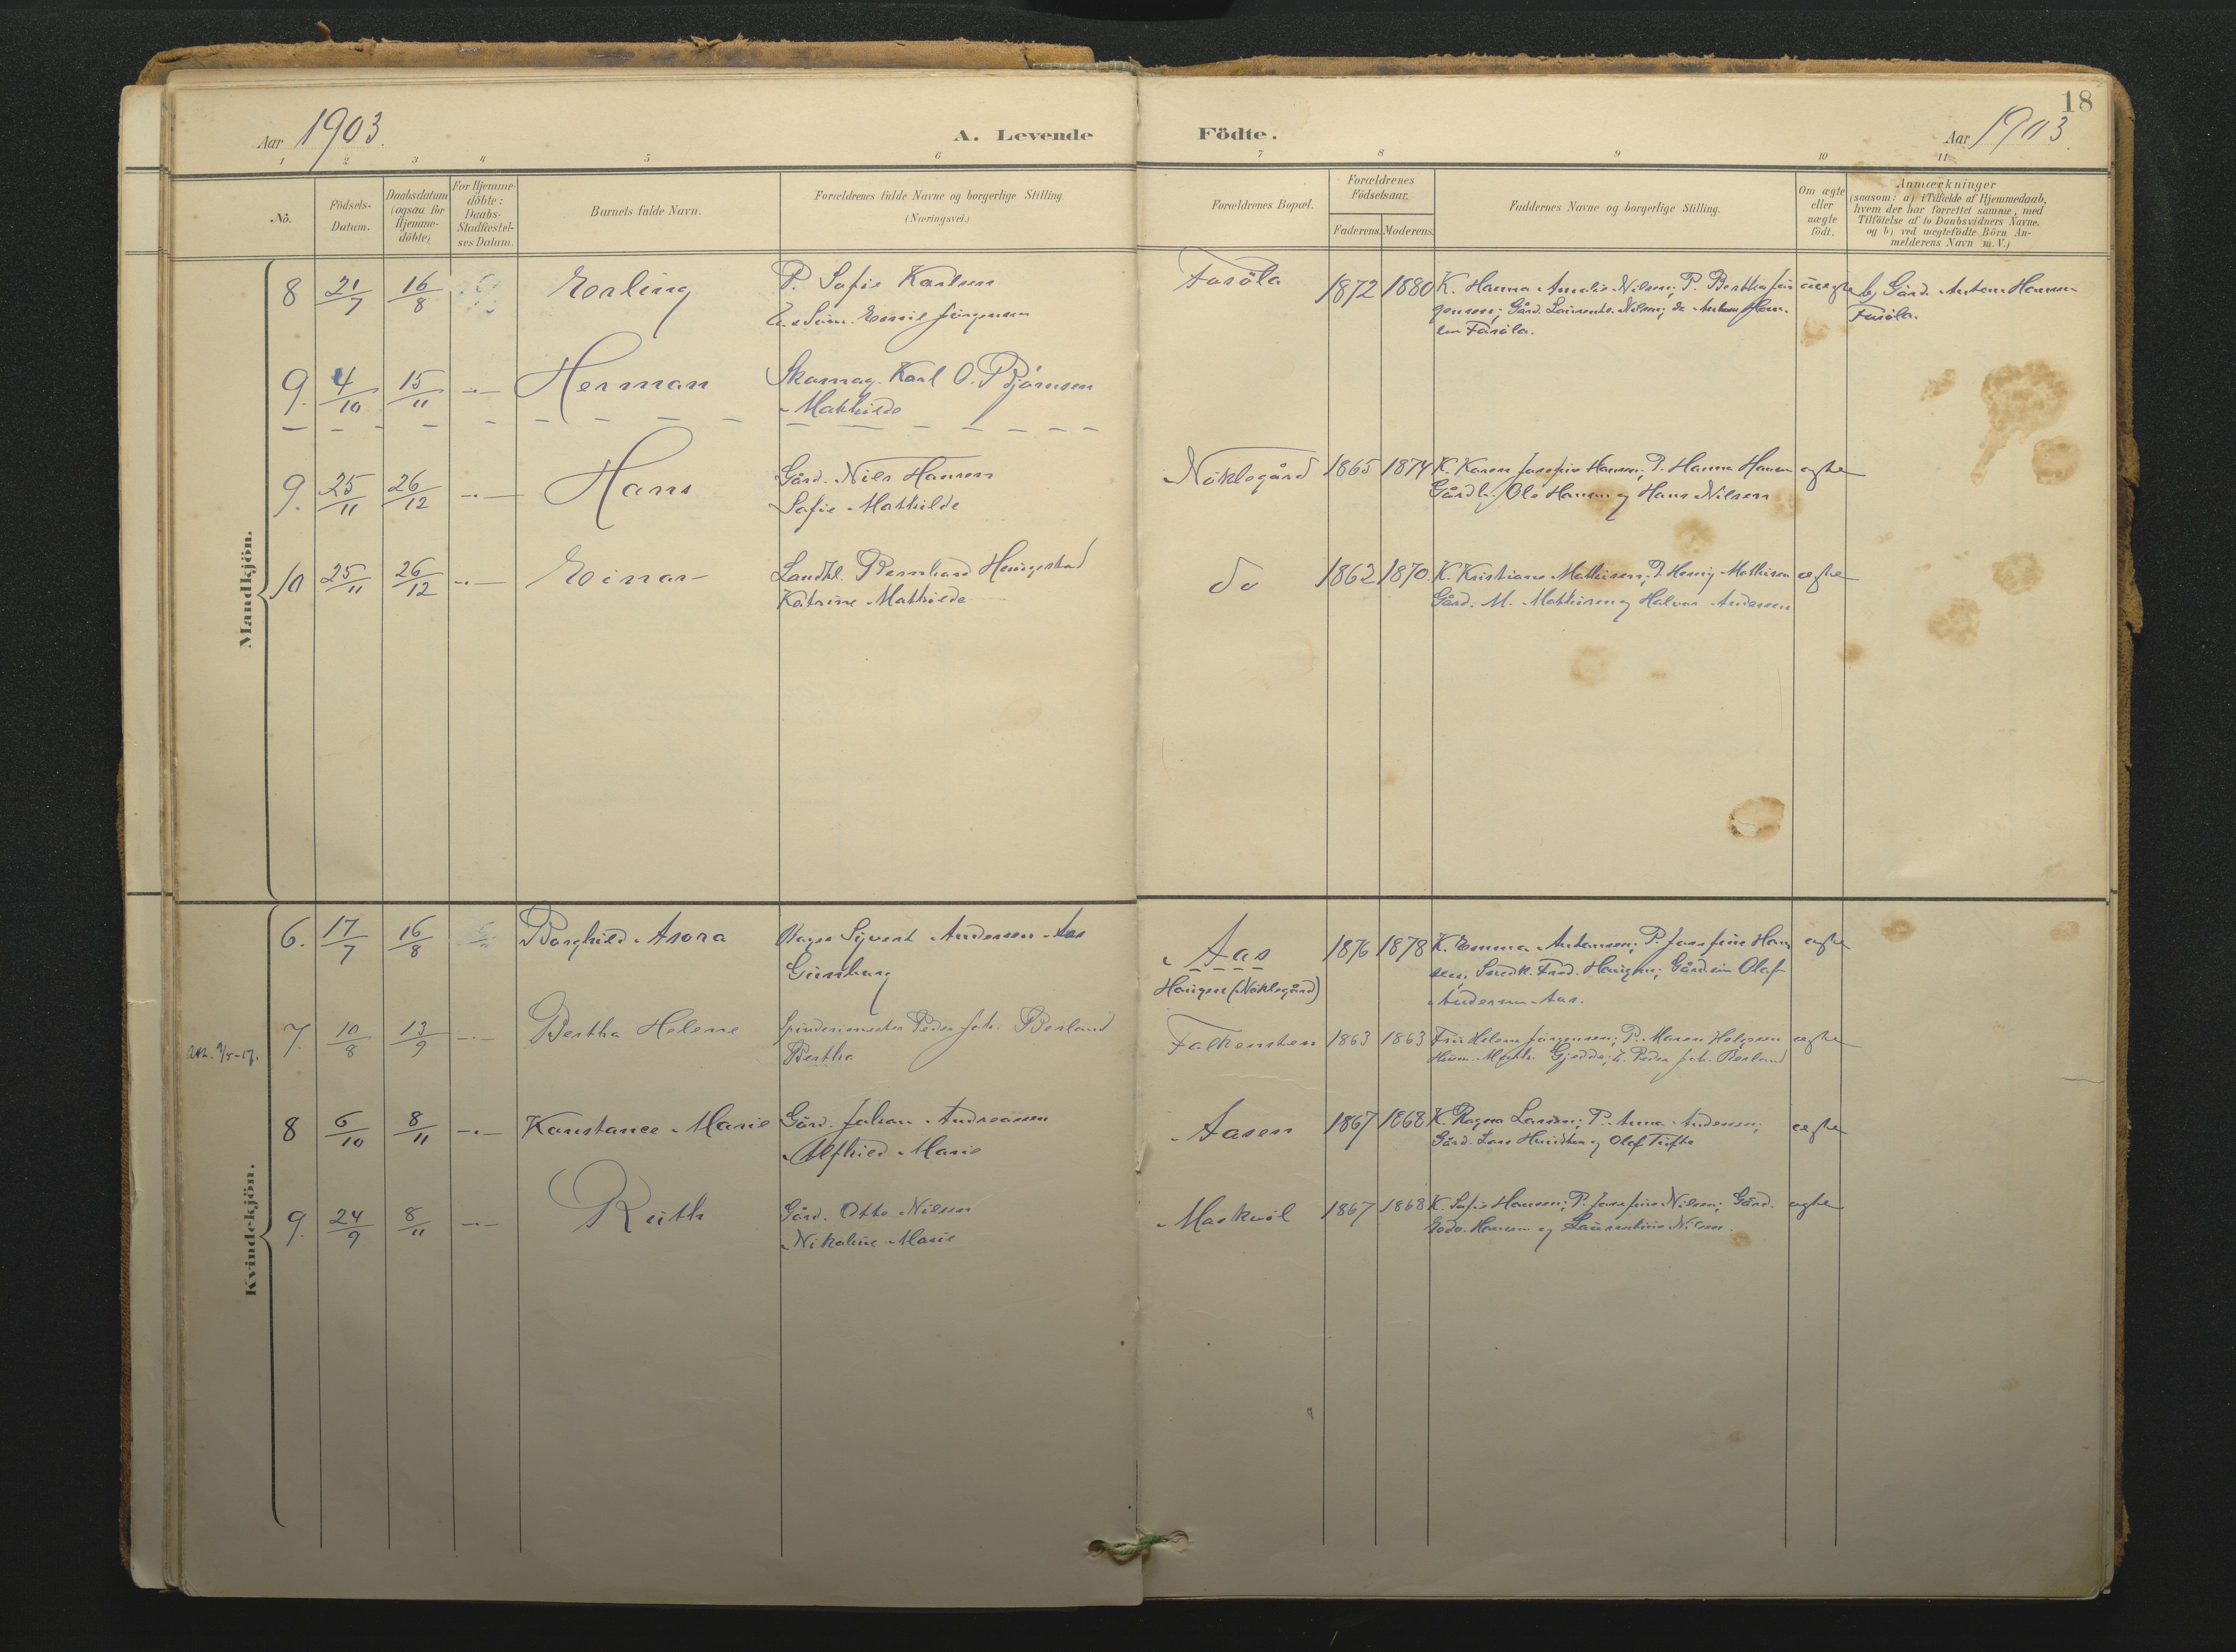 18
Aar 1903.
A. Levende
Födte.
Aar 1903.
1 2 3 4 5 6 7 8 9 10 11
No.
Födsels-
Datum.
Daabsdatum
(ogsaa for
Hjemme-
döbte)
For Hjemme-
döbte:
Daabs-
Stadfæstel-
ses Datum.
Barnets fulde Navn.
Forældrenes fulde Navne og borgerlige Stilling
(Næringsvei.)
Forældrenes Bopæl.
Forældrenes
Födselsaar.
Faderens. Moderens.
Faddernes Navne og borgerlige Stilling.
Om ægte
eller
uægte
födt.
Anmærkninger
(saasom: a) i Tilfælde af Hjemmedaab,
hvem der har forrettet samme, med
Tilföielse af to Daabsvidners Navne.
og b) ved uægtefödte Börn An-
melderens Navn m. V.)
Mandkjön.
8 21/7 16/8 Erling P. Sofie Karlsen Faröla 1872 1880 K. Hanna Amalie Nilsen; P. Bertha Jör uægte b) Gård. Anton Hansen
Emil Jörgensen
gensen; Gård. Laurents Nilsen; do Anton Han-
sen Faröla.
Faröla.
9. 4/10 15/11 -"- Herman Skomag. Karl O. Bjørnsen
Mathilde
9. 25/11 26/12 -"- Hans Gård. Nils Hansen Nöklegård 1865 1874 K. Karen Josefine Hansen; P. Hanna Hansen ægte
Sofie Mathilde
Gårdb. Ole Hansen og Hans Nilsen
10 25/11 26/12 -"- Einar Landhl. Bernhard Heningstad do 1862 1870. K. Kristiane Mathisen; P. Henny Mathisen ægte
Katrine Mathilde
Gård. M. Mathisen og Halvor Andersen
Kvindekjön.
6. 17/7 16/8 Borghild Asora Sÿvert Andersen Aas Aas 1876 1878 K. Emma Antonsen; P. Josefine Han ægte
Gunborg
Haugen (Nöklegård)
sen; Snedk. Fred. Haugen; Gårds. Olaf
Andersen Aas.
7. 10/8 13/9 -"- Bertha Helene Spinderimester Peder Joh. Berland Falkensten 1863 1863 Fru Helene Jörgensen; P. Maren Helgesen ægte
Att. 9/5-17.
Bertha
Gjedde; Peder Joh. Berland
8 6/10 8/11 -"- Konstance Marie Gård. Johan Andreassen Aasen 1867 1868 K. Ragna Larsen; P. Anna Andersen; ægte
Alfhild Marie
Gård. Lars og Olaf Tufte
9. 24/9 8/11 -"- Ruth Gård. Otto Nilsen Markvöl 1867 1868 K. Sofie Hansen; P. Josefine Nilsen; Gård. ægte
Nikoline Marie
Hansen og Laurentius Nilsen